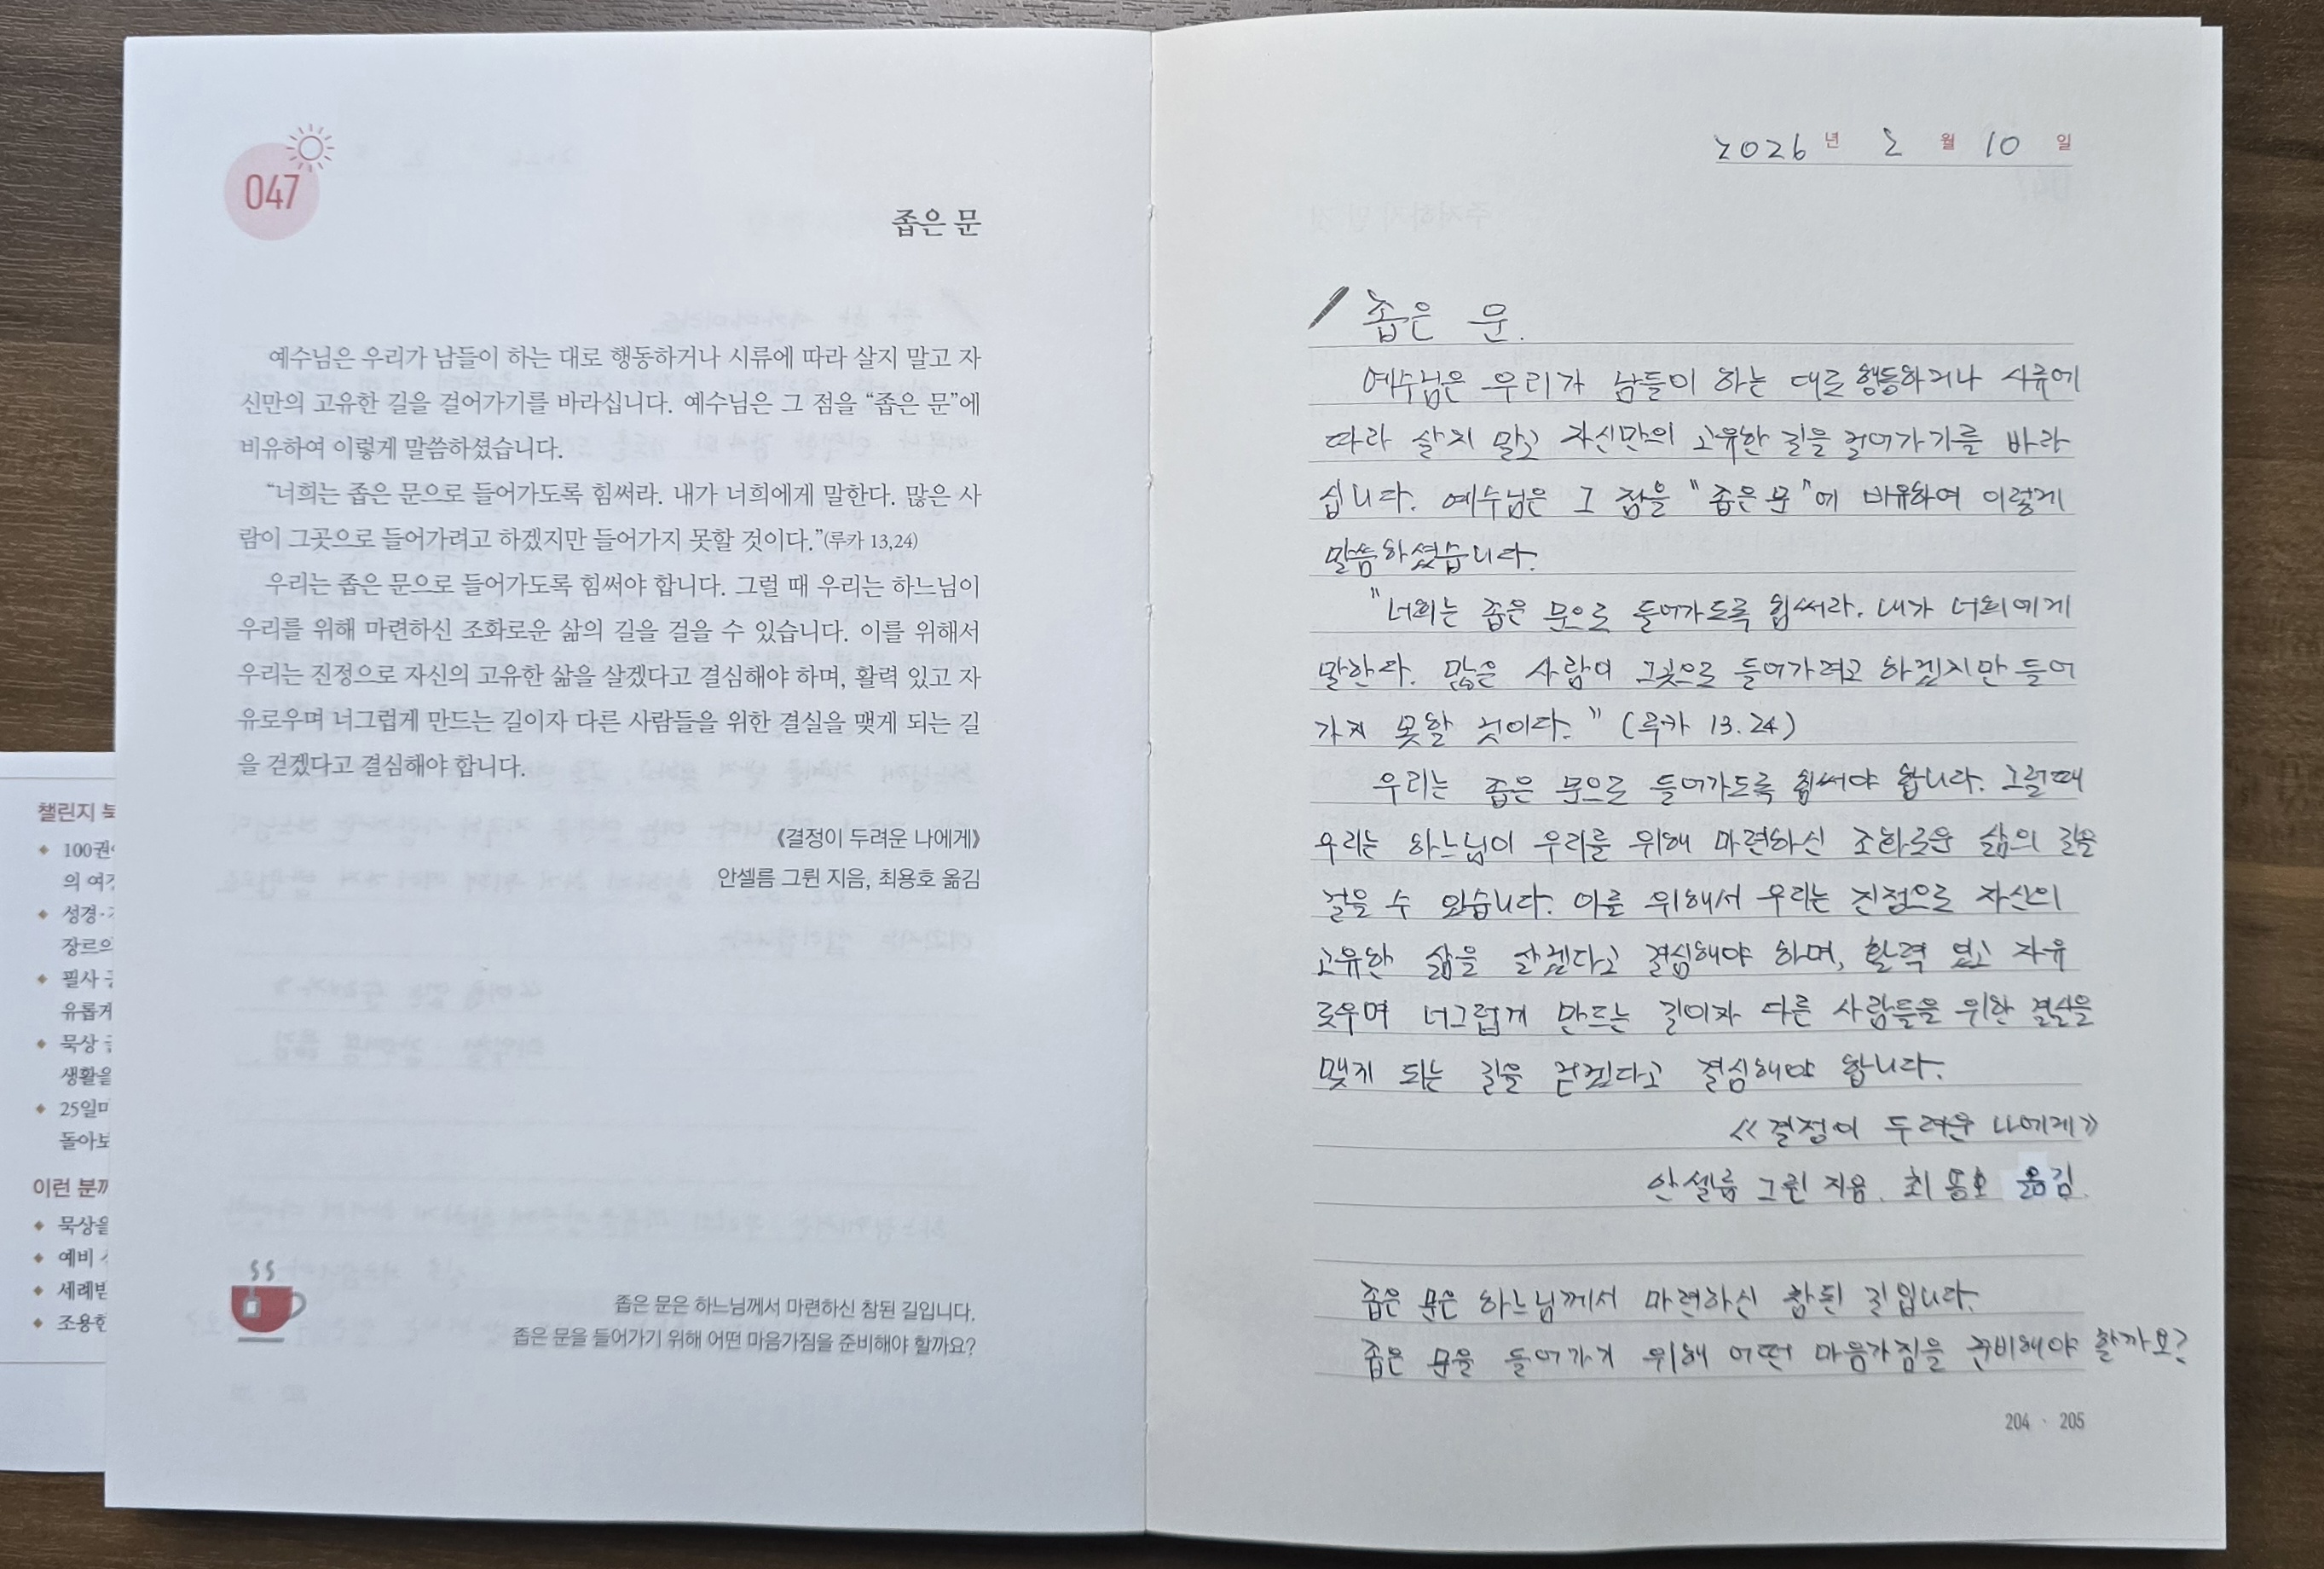 047
좁은 문
예수님은 우리가 남들이 하는 대로 행동하거나 시류에 따라 살지 말고 자
신만의 고유한 길을 걸어가기를 바라십니다. 예수님은 그 점을 “좁은 문”에
비유하여 이렇게 말씀하셨습니다.
“너희는 좁은 문으로 들어가도록 힘써라. 내가 너희에게 말한다. 많은 사
람이 그곳으로 들어가려고 하겠지만 들어가지 못할 것이다.”(루카 13,24)
우리는 좁은 문으로 들어가도록 힘써야 합니다. 그럴 때 우리는 하느님이
우리를 위해 마련하신 조화로운 삶의 길을 걸을 수 있습니다. 이를 위해서
우리는 진정으로 자신의 고유한 삶을 살겠다고 결심해야 하며, 활력 있고 자
유로우며 너그럽게 만드는 길이자 다른 사람들을 위한 결실을 맺게 되는 길
을 걷겠다고 결심해야 합니다.
《결정이 두려운 나에게》
안셀름 그륀 지음, 최용호 옮김
좁은 문은 하느님께서 마련하신 참된 길입니다.
좁은 문을 들어가기 위해 어떤 마음가짐을 준비해야 할까요?
챌린지 북
100권
의 여
성경·
장르의
필사
유롭게
묵상
생활을
25일마
돌아보
이런 분께
묵상을
예비
세례받
조용한
2026 년 2 월 10 일
좁은 문.
예수님은 우리가 남들이 하는 대로 행동하거나 시류에
따라 살지 말고 자신만의 고유한 길을 걸어가기를 바라
십니다. 예수님은 그 점을 "좁은 문"에 비유하여 이렇게
말씀하셨습니다.
"너희는 좁은 문으로 들어가도록 힘써라. 내가 너희에게
말한다. 많은 사람이 그곳으로 들어가려고 하겠지만 들어
가지 못할 것이다." (루카 13.24)
우리는 좁은 문으로 들어가도록 힘써야 합니다. 그럴때
우리는 하느님이 우리를 위해 마련하신 조화로운 삶의 길을
걸을 수 있습니다. 이를 위해서 우리는 진정으로 자신의
고유한 삶을 살겠다고 결심해야 하며, 활력 있고 자유
로우며 너그럽게 만드는 길이자 다른 사람들을 위한 결실을
맺게 되는 길을 걷겠다고 결심해야 합니다.
《결정이 두려운 나에게》
안셀름 그륀 지음. 최용호 옮김.
좁은 문은 하느님께서 마련하신 참된 길입니다.
좁은 문을 들어가기 위해 어떤 마음가짐을 준비해야 할까요?
204 · 205